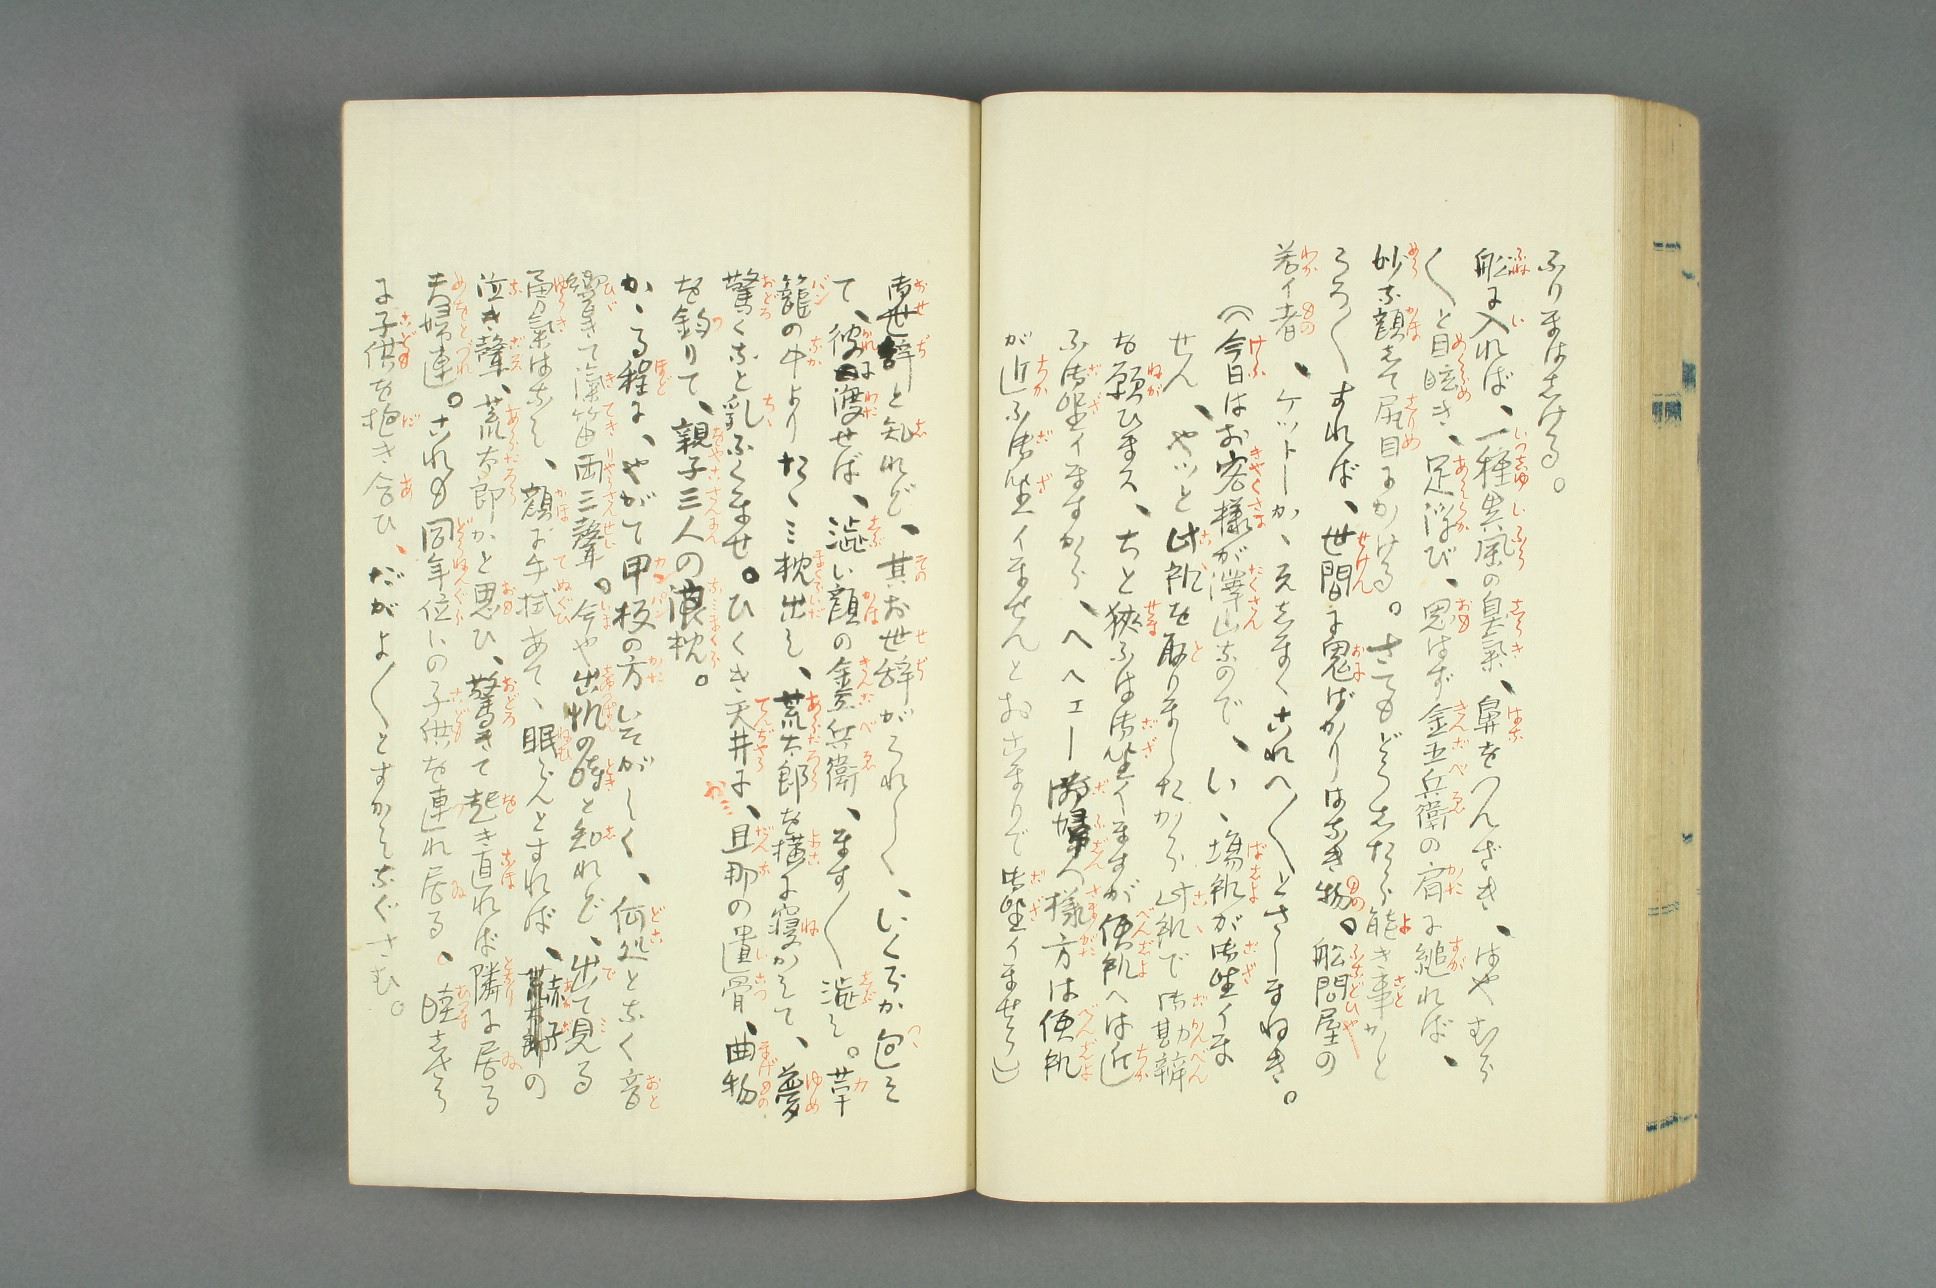 ふりまはしける。
船に入れば、一種異風の臭氣、鼻をつんざき、はやむら
〱と目眩き、足浮び、思はず金五兵衛の肩に縋れば、
妙な顔して尻目にかける。さてもどうしたら能き事かと
うろ〱すれば、世間に鬼ばかりはなき物。船問屋の
若イ者、ケットーか、えしまくこれへ〱とさしまねき。
(今日はお客様が澤山なので、い、塲処が御坐イま
せん、やッと此処を取りましたから此処で御勘辨
お願ひます、ちと狹ふは御坐イますが便処へは近
ふ御坐イますから、ヘヘエー御婦人様方は便処
が近ふ御坐イませんとおこまりで御坐イませう)
御世辞と知れど、其お世辞がうれしく、いくらか包ミ
て、彼に渡せば、澁い顔の金五兵衛、ます〱澁ミ。革
籠の中よりたゝミ枕出し、荒太郎を横に寝かして、夢
驚くなと乳ふくませ。ひくき天井に、旦那の遺骨、曲物
を釣りて、親子三人の浪枕。
かゝる程に、やがて甲板の方いそがしく、何処となく音
響きて瀛笛両三聲。今や出帆の時と知れど、出て見る
勇氣はなし、顔に手拭あて、眠らんとすれば、赤子の
泣き聲、荒太郎かと思ひ、驚きて起き直れば隣に居る
夫婦連。これも同年位いの子供を連れ居る、睦しさう
に子供を抱き合ひ、だがよ〱とすかしなぐさむ。